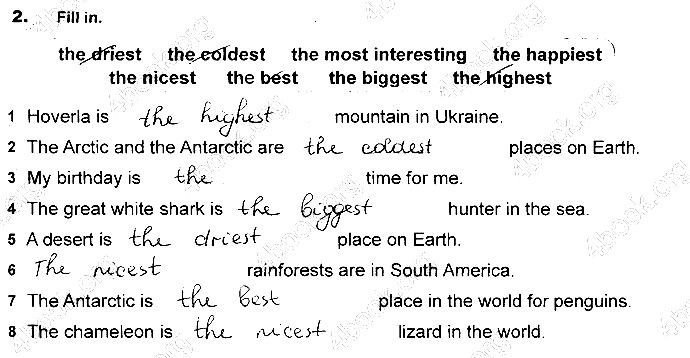 2. Fill in.
the driest the coldest the most interesting the happiest
the nicest the best the biggest the highest
1 Hoverla is the highest mountain in Ukraine.
2 The Arctic and the Antarctic are the coldest places on Earth.
3 My birthday is the time for me.
4 The great white shark is the biggest hunter in the sea.
5 A desert is the driest place on Earth.
6 The nicest rainforests are in South America.
7 The Antarctic is the best place in the world for penguins.
8 The chameleon is the nicest lizard in the world.